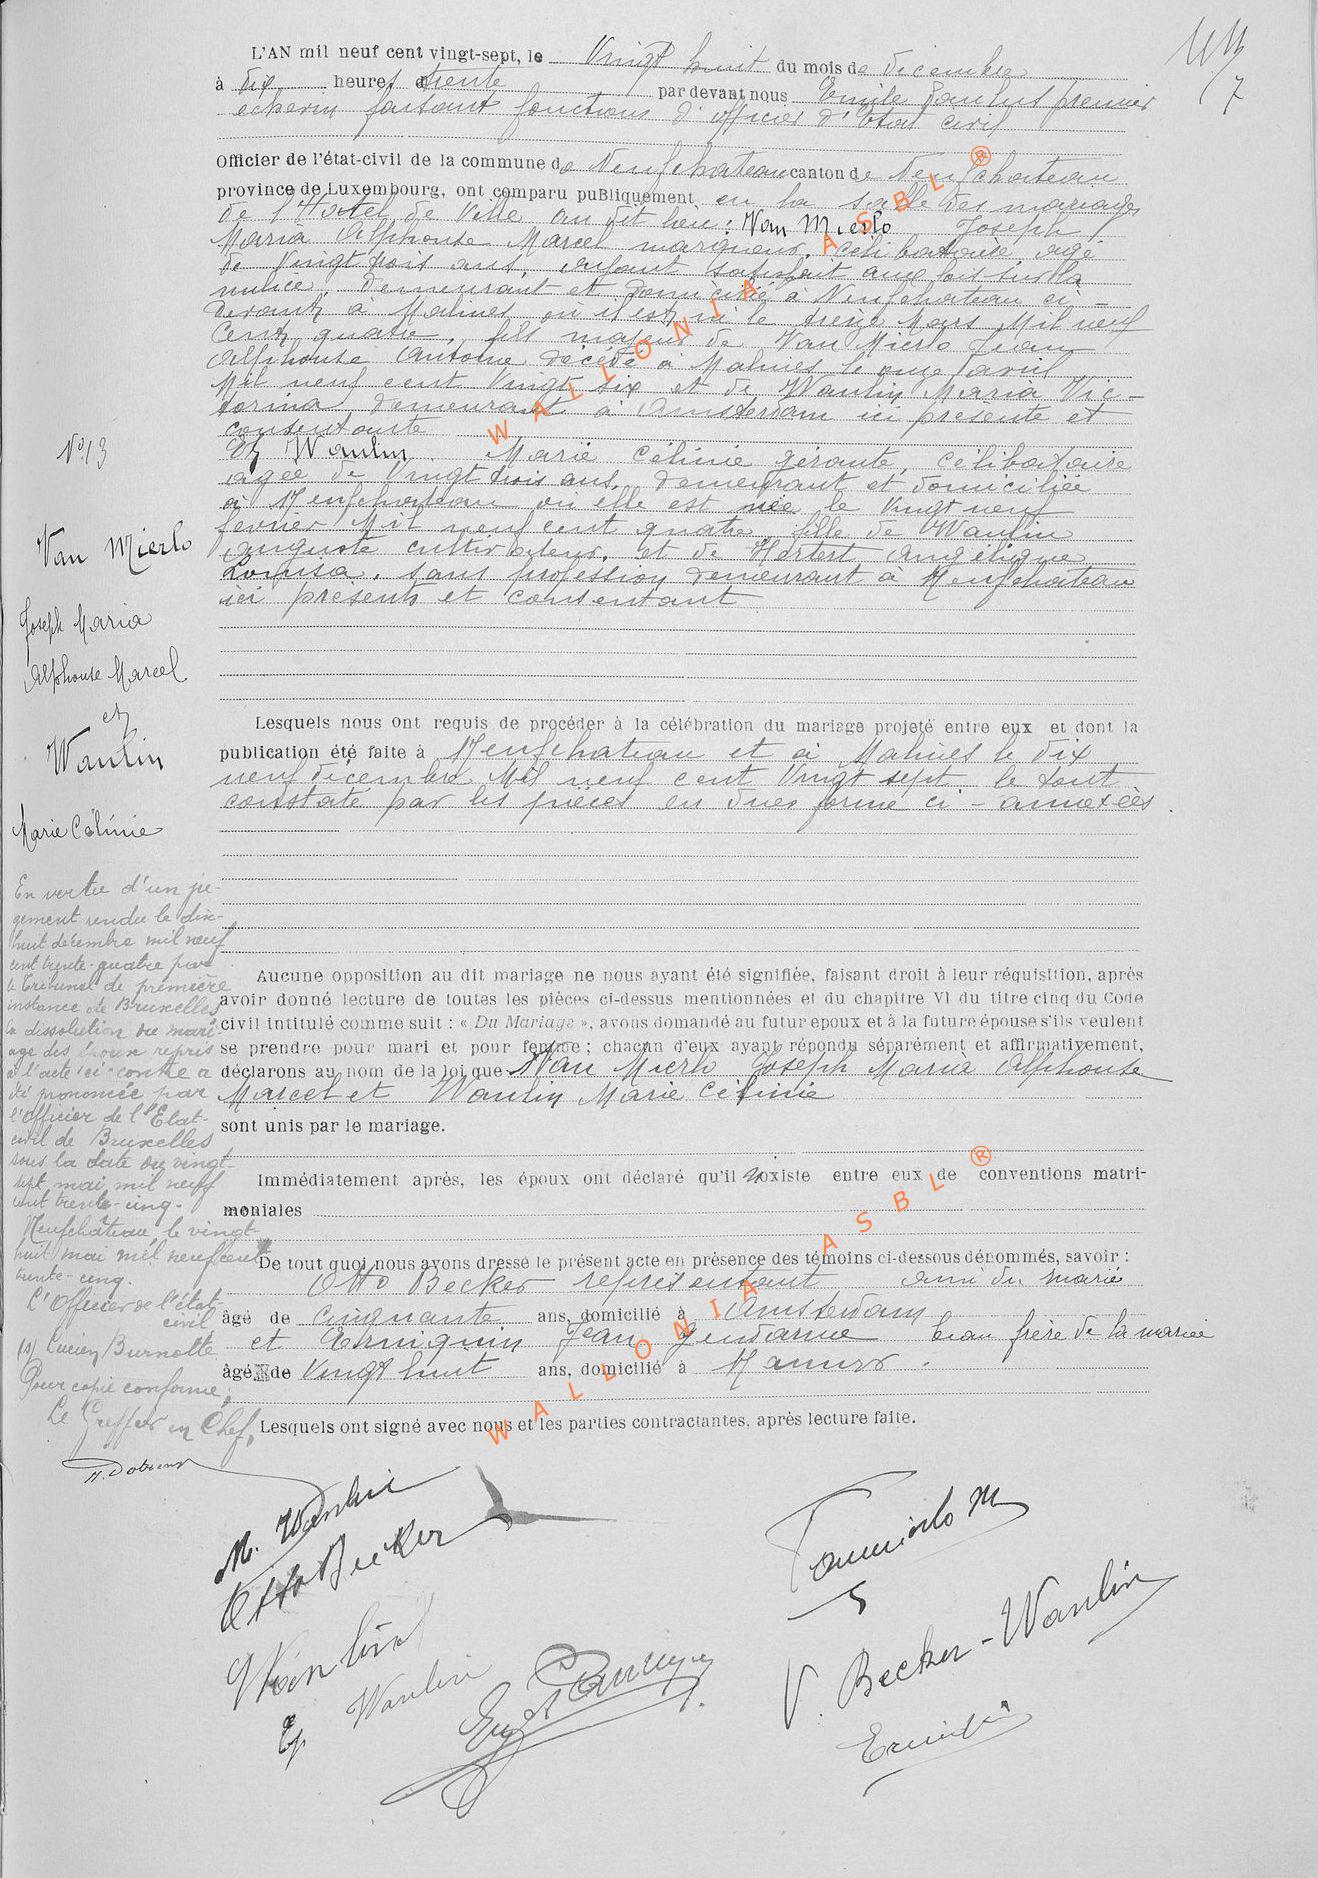 L'AN mil neuf cent vingt-sept, le Vingt huit du mois de décembre
à dix heures trente par devant nous Emile Paulus premier
echevin faisant fonctions d'officier d'Etat civil
Officier de l'état-civil de la commune de Neufchateau canton de Neufchateau
province de Luxembourg, ont comparu publiquement, en la salle des mariages
de l'Hotel de Ville au dit lieu : Van Mierlo Joseph
Maria Alphonse Marcel marqueur, célibataire, agé
de Vingt trois ans, ayant satisfait aux lois sur la
milice, demeurant et domicilié à Neufchateau ci-
devant à Malines où il est né le treize Mars Mil neuf
Cent quatre, fils majeur de Van Mierlo Jean
Alphonse Antoine décédé à Malines le onze avril
Mil neuf cent Vingt six et de Waulin Maria Vic-
torina demeurant à Amsterdam ici presente et
consentante
Et Waulin Marie Célinie gérante, célibataire
agée de Vingt trois ans, demeurant et domiciliée
à Neufchateau où elle est née le Vingt neuf
février Mil neuf cent quatre, fille de Waulin
Auguste cultivateur, et de Hertert Angélique
Louisa, sans profession demeurant à Neufchateau
ici presents et consentant
Nº 13
Van Mierlo
Joseph Maria
Alphonse Marcel
et
Waulin
Marie Célinie
Lesquels nous ont requis de procéder à la célébration du mariage projeté entre eux et dont la
publication été faite à Neufchateau et à Malines le dix
neuf décembre Mil neuf cent Vingt sept le tout
constaté par les pièces en dues forme ci-annexées
Aucune opposition au dit mariage ne nous ayant été signifiée, faisant droit à leur réquisition, après
avoir donné lecture de toutes les pièces ci-dessus mentionnées et du chapitre VI du titre cinq du Code
civil intitulé comme suit : « Du Mariage », avons demandé au futur epoux et à la future épouse s'ils veulent
se prendre pour mari et pour femme ; chacun d'eux ayant répondu séparément et affirmativement,
déclarons au nom de la loi que Van Mierlo Joseph Maria Alphonse
Marcel et Waulin Marie Célinie
sont unis par le mariage.
Immédiatement après, les époux ont déclaré qu'il n'existe entre eux de conventions matri-
moniales
De tout quoi nous avons dressé le présent acte en présence des témoins ci-dessous dénommés, savoir :
Otto Becker représentant ami du marié
âgé de cinquante ans, domicilié à Amsterdam
et Erniquin Jean gendarme beau frère de la mariée
âgé de Vingt huit ans, domicilié à Namur.
Lesquels ont signé avec nous et les parties contractantes, après lecture faite.
En vertu d'un ju-
gement rendu le dix-
huit décembre mil neuf
cent trente-quatre par
le Tribunal de première
instance de Bruxelles
la dissolution du mari-
age des époux repris
à l'acte ci-contre a
été prononcée par
l'Officier de l'Etat-
civil de Bruxelles
sous la date du vingt-
sept mai mil neuf
cent trente-cinq.
Neufchâteau, le vingt-
huit mai mil neuf cent
trente-cinq.
L'Officier de l'état
civil
(s) Lucien Burnotte
Pour copie conforme,
Le Greffier en Chef,
M. Waulin
Otto Becker
Vanmierlo M
Waulin
V. Becker-Waulin
Erniquin
WALLONIA ASBL ®
WALLONIA ASBL ®